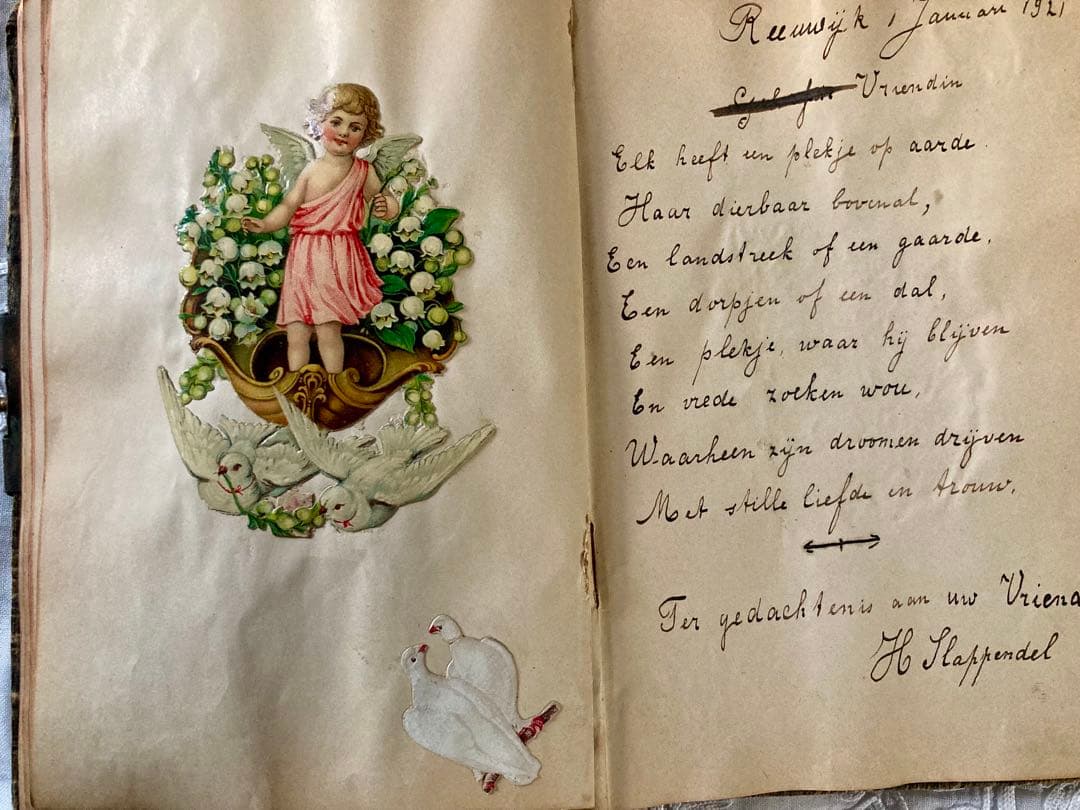 Reeuwijk 1 Januari 1921
Vriendin
Elk heeft een plekje op aarde.
Haar dierbaar bovenal,
Een landstreek of een gaarde,
Een dorpjen of een dal,
Een plekje, waar hij blijven
En vrede zoeken wou,
Waarheen zijn droomen drijven
Met stille liefde en trouw.
Ter gedachtenis aan uw Vriend
H Slappendel